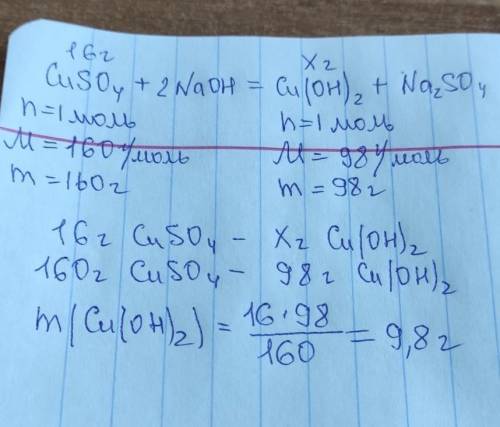 16г хг
CuSO₄ + 2NaOH = Cu(OH)₂ + Na₂SO₄
n = 1 моль n = 1 моль
M = 160 г/моль M = 98 г/моль
m = 160г m = 98г
16г CuSO₄ - хг Cu(OH)₂
160г CuSO₄ - 98г Cu(OH)₂
m(Cu(OH)₂) = 16·98/160 = 9,8г